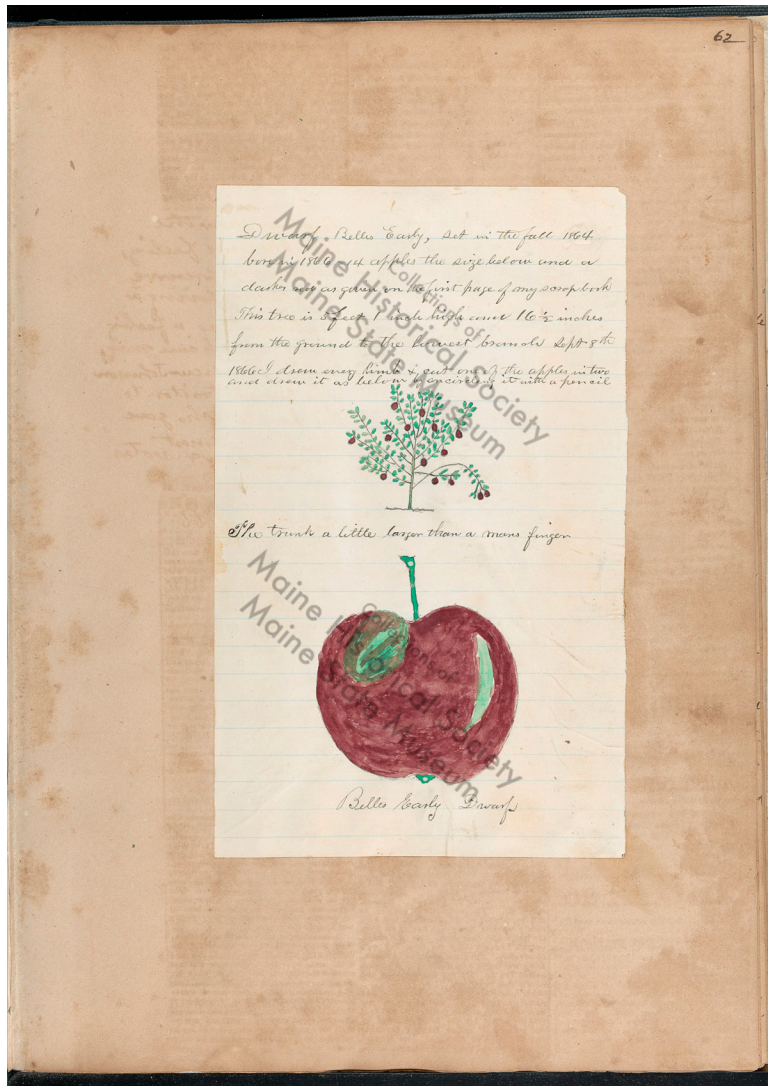 62
Dwarf. Belles Early, set in the fall 1864
bore in 1866 14 apples the size below and a
darker as given on the first page of my scrap book
This tree is 5 feet 1 inch high and 16 1/2 inches
from the ground to the lowest branch Sept 8th
1866 I drew every limb & cut one of the apples in two
and drew it as below by encircling it with a pencil
The trunk a little larger than a mans finger
Belles Early Dwarf
Collections of
Maine Historical Society
Maine State Museum
Collections of
Maine Historical Society
Maine State Museum